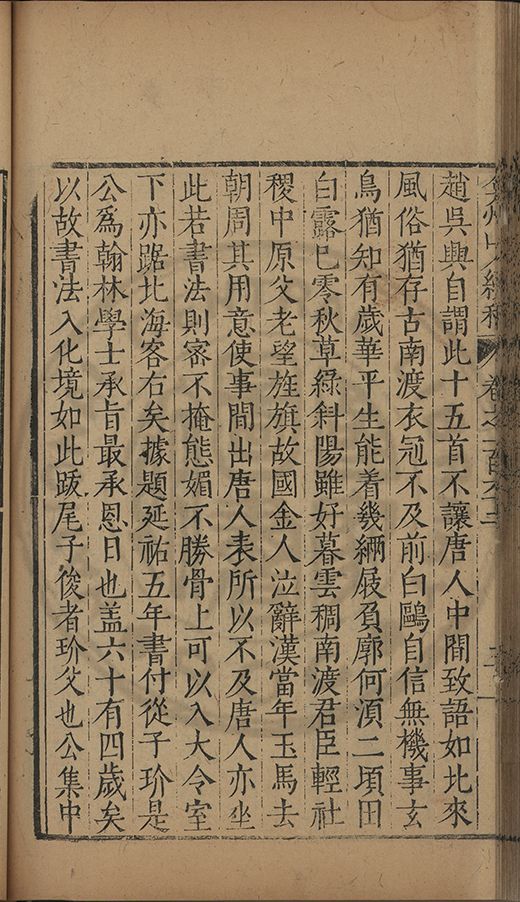 弇州山人續稿 卷之一百六十二
趙吳興自謂此十五首不讓唐人中間致語如比來
風俗猶存古南渡衣冠不及前白鷗自信無機事玄
鳥猶知有歲華平生能着幾緉屐負郭何湏二頃田
白露已零秋草綠斜陽雖好暮雲稠南渡君臣輕社
稷中原父老望旌旗故國金人泣辭漢當年玉馬去
朝周其用意使事間出唐人表所以不及唐人亦坐
此若書法則密不掩態媚不勝骨上可以入大令室
下亦踞北海客右矣據題延祐五年書付從子玠是
公爲翰林學士承旨最承恩日也盖六十有四歲矣
以故書法入化境如此跋尾子俊者玠父也公集中